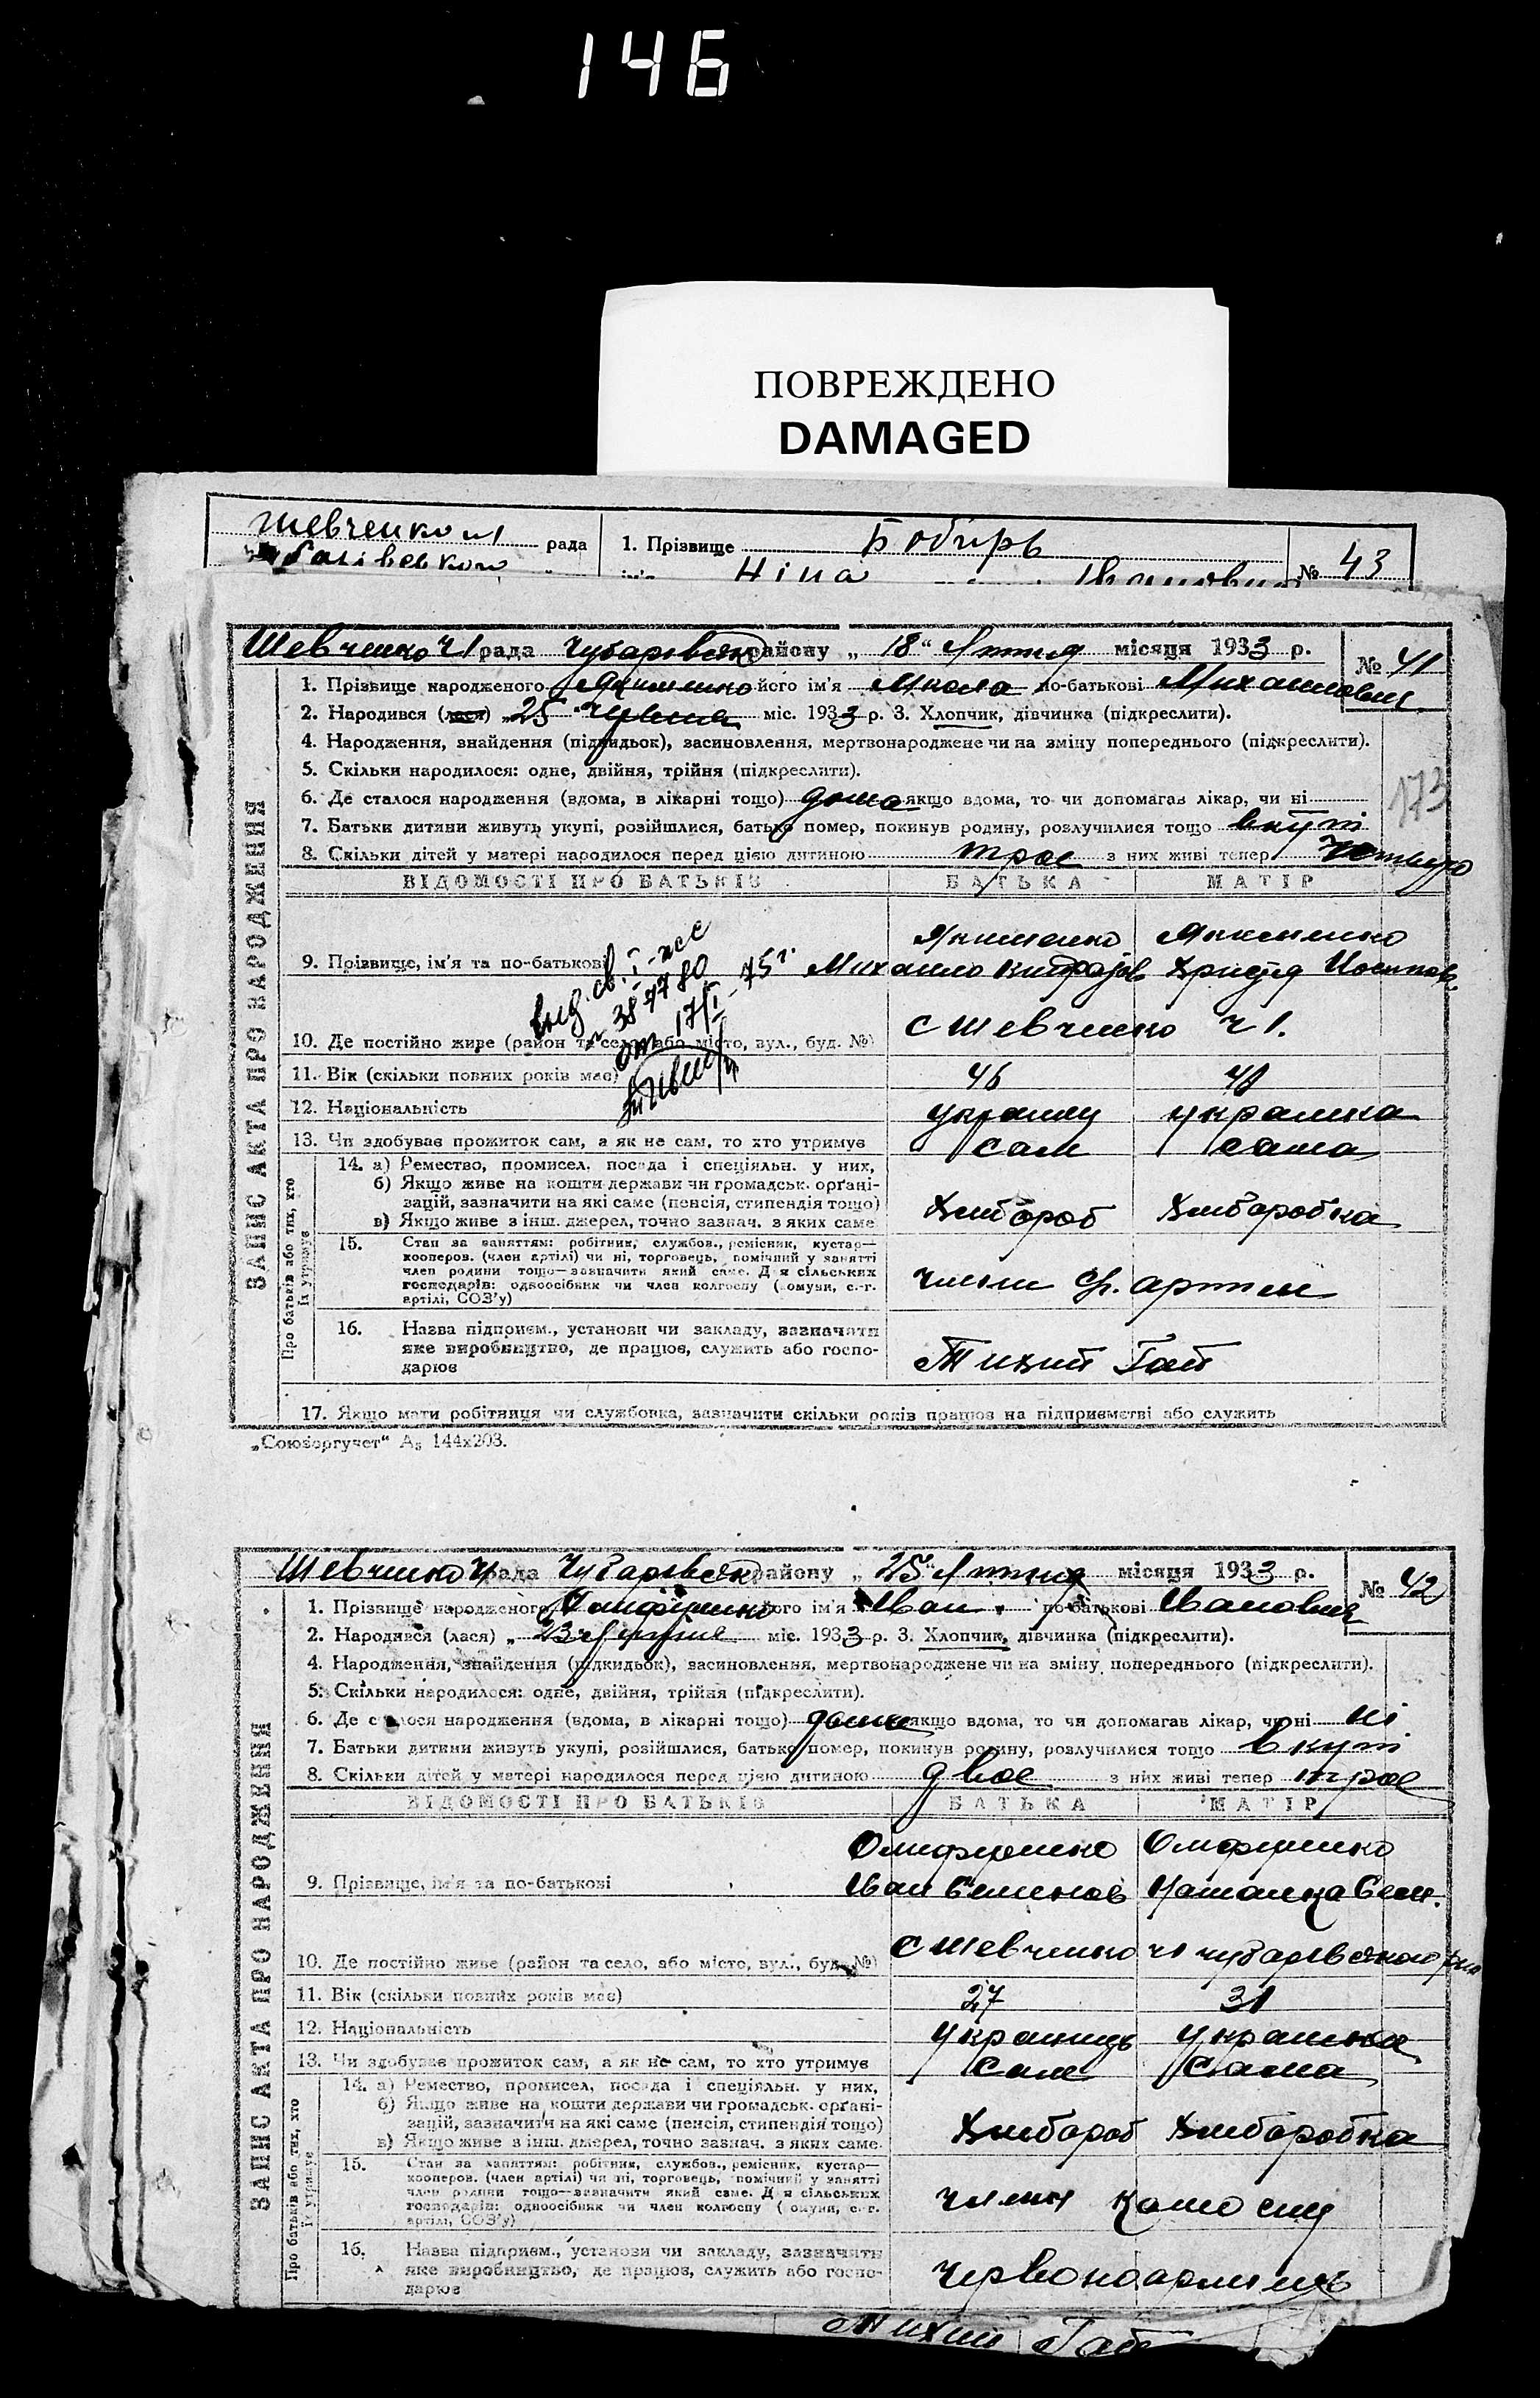 146
ПОВРЕЖДЕНО
DAMAGED
Шевченко ч1 рада 1. Прізвище Бобирь
Ніна № 43
Шевченко ч1 рада Чубарівськ району „ 18 “ Липня місяця 1933 р. № 41
1. Прізвище народженого Якименко його ім'я Микола по-батькові Михайлович
2. Народився (лася) „ 25 Червня міс. 1933 р. 3. Хлопчик, дівчинка (підкреслити).
4. Народження, знайдення (підкидьок), засиновлення, мертвонароджене чи на зміну попереднього (підкреслити).
5. Скільки народилося: одне, двійня, трійня (підкреслити).
6. Де сталося народження (вдома, в лікарні тощо) дома якщо вдома, то чи допомагав лікар, чи ні
173
7. Батьки дитини живуть укупі, розійшлися, батько помер, покинув родину, розлучилися тощо вкупі
8. Скільки дітей у матері народилося перед цією дитиною троє з них живі тепер Четверо
ВІДОМОСТІ ПРО БАТЬКІВ БАТЬКА МАТІР
Якименко Якименко
9. Прізвище, ім'я та по-батькові Михайло Христя
выд. св. I-
№ 387780
от 17/I-75г.
с Шевченко ч 1.
10. Де постійно живе (район та село, або місто, вул., буд. №)
11. Вік (скільки повних років має) 46
12. Національність українец українка
13. Чи здобуває прожиток сам, а як не сам, то хто утримує сам сама
14. а) Ремество, промисел, посада і спеціяльн. у них,
б) Якщо живе на кошти держави чи громадськ. орґані-
зацій, зазначити на які саме (пенсія, стипендія тощо) Хлібороб Хліборобка
в) Якщо живе з інш. джерел, точно зазнач. з яких саме
15. Стан за заняттям: робітник, службов., ремісник, кустар—
кооперов. (член артілі) чи ні, торговець, помічний у занятті
член родини тощо—зазначити який саме. Для сільських
господарів: одноосібник чи член колгоспу (комуни, с.-г.
артілі, СОЗ'у) член с.г. артели
16. Назва підприєм., установи чи закладу, зазначати
яке виробництво, де працює, служить або госпо-
дарює Тихий Гай
17. Якщо мати робітниця чи службовка, зазначити скільки років працює на підприємстві або служить
„Союзоргучет“ А5 144х203.
ЗАПИС АКТА ПРО НАРОДЖЕННЯ
Про батьків або тих, хто їх утримує
Шевченко ч1 рада Чубарівськ району „ 25 “ Липня місяця 1933 р. № 42
1. Прізвище народженого його ім'я Іван по-батькові Іванович
2. Народився (лася) „ 23 міс. 1933 р. 3. Хлопчик, дівчинка (підкреслити).
4. Народження, знайдення (підкидьок), засиновлення, мертвонароджене чи на зміну попереднього (підкреслити).
5. Скільки народилося: одне, двійня, трійня (підкреслити).
6. Де сталося народження (вдома, в лікарні тощо) дома якщо вдома, то чи допомагав лікар, чи ні ні
7. Батьки дитини живуть укупі, розійшлися, батько помер, покинув родину, розлучилися тощо вкупі
8. Скільки дітей у матері народилося перед цією дитиною двоє з них живі тепер троє
ВІДОМОСТІ ПРО БАТЬКІВ БАТЬКА МАТІР
9. Прізвище, ім'я та по-батькові Іван Семенов Наталка Сем.
с Шевченко ч1 чубарівського р-на
10. Де постійно живе (район та село, або місто, вул., буд. №)
11. Вік (скільки повних років має) 27 31
12. Національність українець українка
13. Чи здобуває прожиток сам, а як не сам, то хто утримує сам сама
14. а) Ремество, промисел, посада і спеціяльн. у них,
б) Якщо живе на кошти держави чи громадськ. орґані-
зацій, зазначити на які саме (пенсія, стипендія тощо) Хлібороб Хліборобка
в) Якщо живе з інш. джерел, точно зазнач. з яких саме.
15. Стан за заняттям: робітник, службов., ремісник, кустар—
кооперов. (член артілі) чи ні, торговець, помічний у занятті
член родини тощо—зазначити який саме. Для сільських
господарів: одноосібник чи член колгоспу (комуни, с.-г.
артілі, СОЗ'у) член колгоспу
16. Назва підприєм., установи чи закладу, зазначати
яке виробництво, де працює, служить або госпо-
дарює Червоноармиець
ЗАПИС АКТА ПРО НАРОДЖЕННЯ
Про батьків або тих, хто їх утримує
Тихий Гай